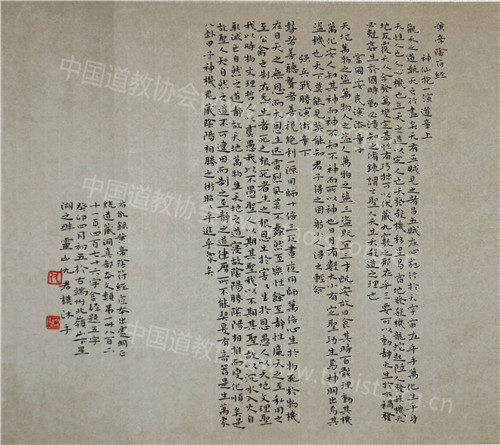 黃帝陰符經
神仙抱一演道章上
觀天之道執天之行盡矣天有五賊見之者昌五賊在心施行於天宇宙在乎手萬化生乎身
天性人也人心機也立天之道以定人也天發殺機移星易宿地發殺機龍蛇起陸人發殺機天
地反覆天人合發萬變定基性有巧拙可以伏藏九竅之邪在乎三要可以動靜火生於木禍發
必剋姦生於國時動必潰知之修鍊謂之聖人天生天殺道之理也
富國安民演法章中
天地萬物之盜萬物人之盜人萬物之盜三盜既宜三才既安故曰食其時百骸理動其機
萬化安人知其神而神不知不神而所以神也日月有數大小有定聖功生焉神明出焉其
盜機也天下莫能見莫能知君子得之固躬小人得之輕命
強兵戰勝演術章下
瞽者善聽聾者善視絕利一源用師十倍三反晝夜用師萬倍心生於物死於物機
在目天之無恩而大恩生迅雷烈風莫不蠢然至樂性餘至靜性廉天之至私用之
至公禽之制在氣生者死之根死者生之根恩生於害害生於恩愚人以天地文理聖
我以時物文理哲人以愚虞聖我以不愚聖人以期其聖我以不期其聖故曰沉水入火自
取滅亡自然之道靜故天地萬物生天地之道浸故陰陽勝陰陽相推而變化順矣是
故聖人知自然之道不可違因而制之至靜之道律曆所不能契爰有奇器是生萬象
八卦甲子神機鬼藏陰陽相勝之術昭昭乎進乎象矣
右敬錄黃帝陰符經經文出正統
道藏洞真部
十一頁四百七十六字含經題五字
癸卯四月初五於古端州北嶺山下星
湖之畔
中国道教协会
www.taoist.org.cn